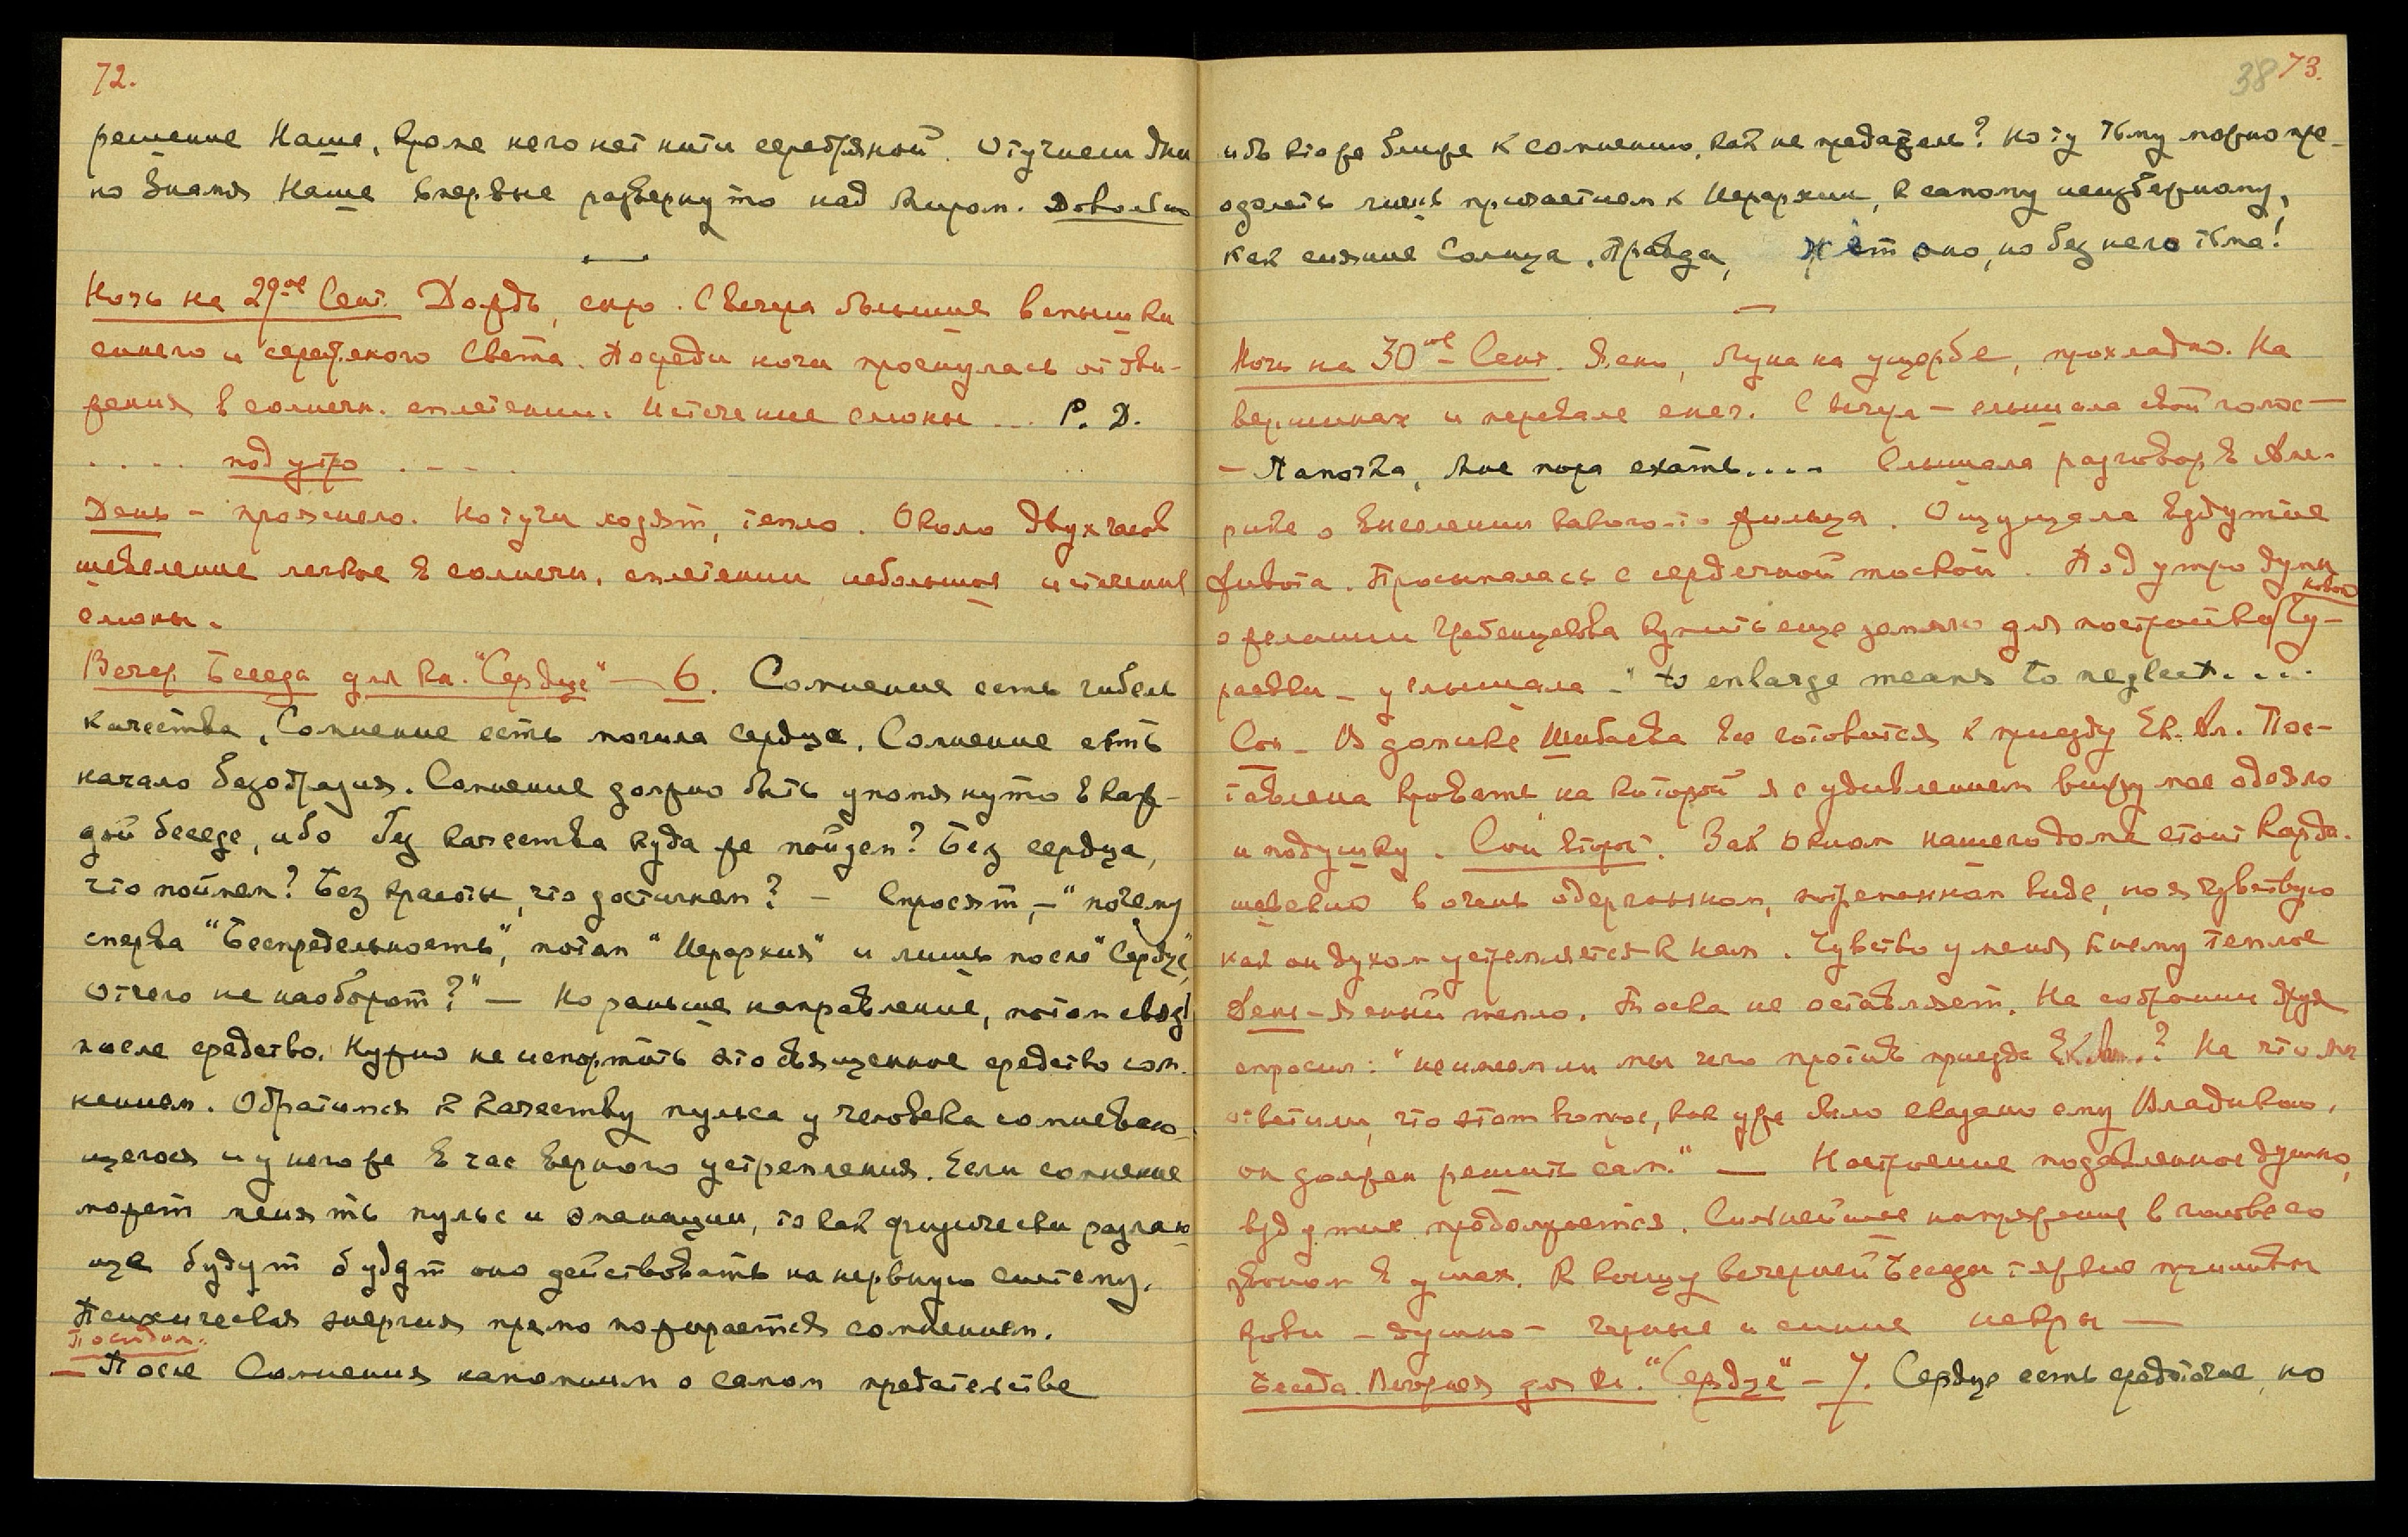 72.
решение Наше, кроме него нет нити серебряной. Отучнели дни
но Знамя Наше впервые развернуто над Миром. Довольно
Ночь на 29ое Сент. Дождь, сыро. С вечера большие вспышки
синего и серебряного Света. Посреди ночи проснулась от дви-
жения в солнечн. сплетении. Истечение слюны ... Р. Д.
.... под утро ....
День – прояснело. Но тучи ходят, тепло. Около двух часов
шевеление легкое в солнечн. сплетении небольшое истечение
слюны.
Вечер. Беседа для кн. "Сердце" – 6. Сомнение есть гибель
качества. Сомнение есть могила сердца. Сомнение есть
начало безобразия. Сомнение должно быть упомянуто в каж-
дой беседе, ибо без качества куда же пойдем? Без сердца,
что поймем? Без красоты, что достигнем? – Спросят, – "почему
сперва "Беспредельность", потом "Иерархия" и лишь после "Сердце",
отчего не наоборот?" – Но раньше направление, потом связь,
после средство. Нужно не испортить это священное средство сом-
нением. Обратимся к качеству пульса у человека сомневаю-
щегося и у него же в час верного устремления. Если сомнение
может менять пульс и эманации, то как физически разлаг-
ающе будут будет оно действовать на нервную систему.
Психическая энергия прямо пожирается сомнением.
– После Сомнения напомним о самом предательстве
38 73.
ибо кто же ближе к сомнению, как не предатель? Но ту тьму можно пре-
одолеть лишь причастием к Иерархии, к самому неизбежному,
как сияние Солнца. Правда, жжёт оно, но без него тьма!
Ночь на 30ое Сент. Ясно, Луна на ущербе, прохладно. На
вершинах и перевале снег. С вечера – слышала свой голос –
– Папочка, мне пора ехать.... Слышала разговор в Аме-
рике о вселении какого-то жильца. Ощущала вздутие
живота. Просыпалась с сердечной тоской. Под утро думы
о желании Чебенцевова купить еще землю для постройки новой Чу-
раевки – услышала – "to enlarge means to neglect....
Сон – В домике Шибаева все готовится к приезду Ек. Ал. Пос-
тавлена кровать на которой я с удивлением вижу мое одеяло
и подушку. Сон второй. За окном нашего дома стоит Карда-
шевский в очень одерганном, потрепанном виде, но я чувствую
как он духом устремляется к нам. Чувство у меня к нему теплое
День – Ясный тепло. Тоска не оставляет. На собрании Яруя
спросил: "не имеем ли мы чего против приезда Ек. Ал.? На что мы
ответили, что этот вопрос, как уже было сказано ему Владыкою,
он должен решить сам." – Настроение подавленное душно,
вздутие продолжается. Сильнейшее напряжение в голове со
звоном в ушах. К концу вечерней Беседы тяжкие приливы
крови – душно – черные и синие искры –
Беседа Вечерняя для кн. "Сердце" – 7. Сердце есть средоточие, но